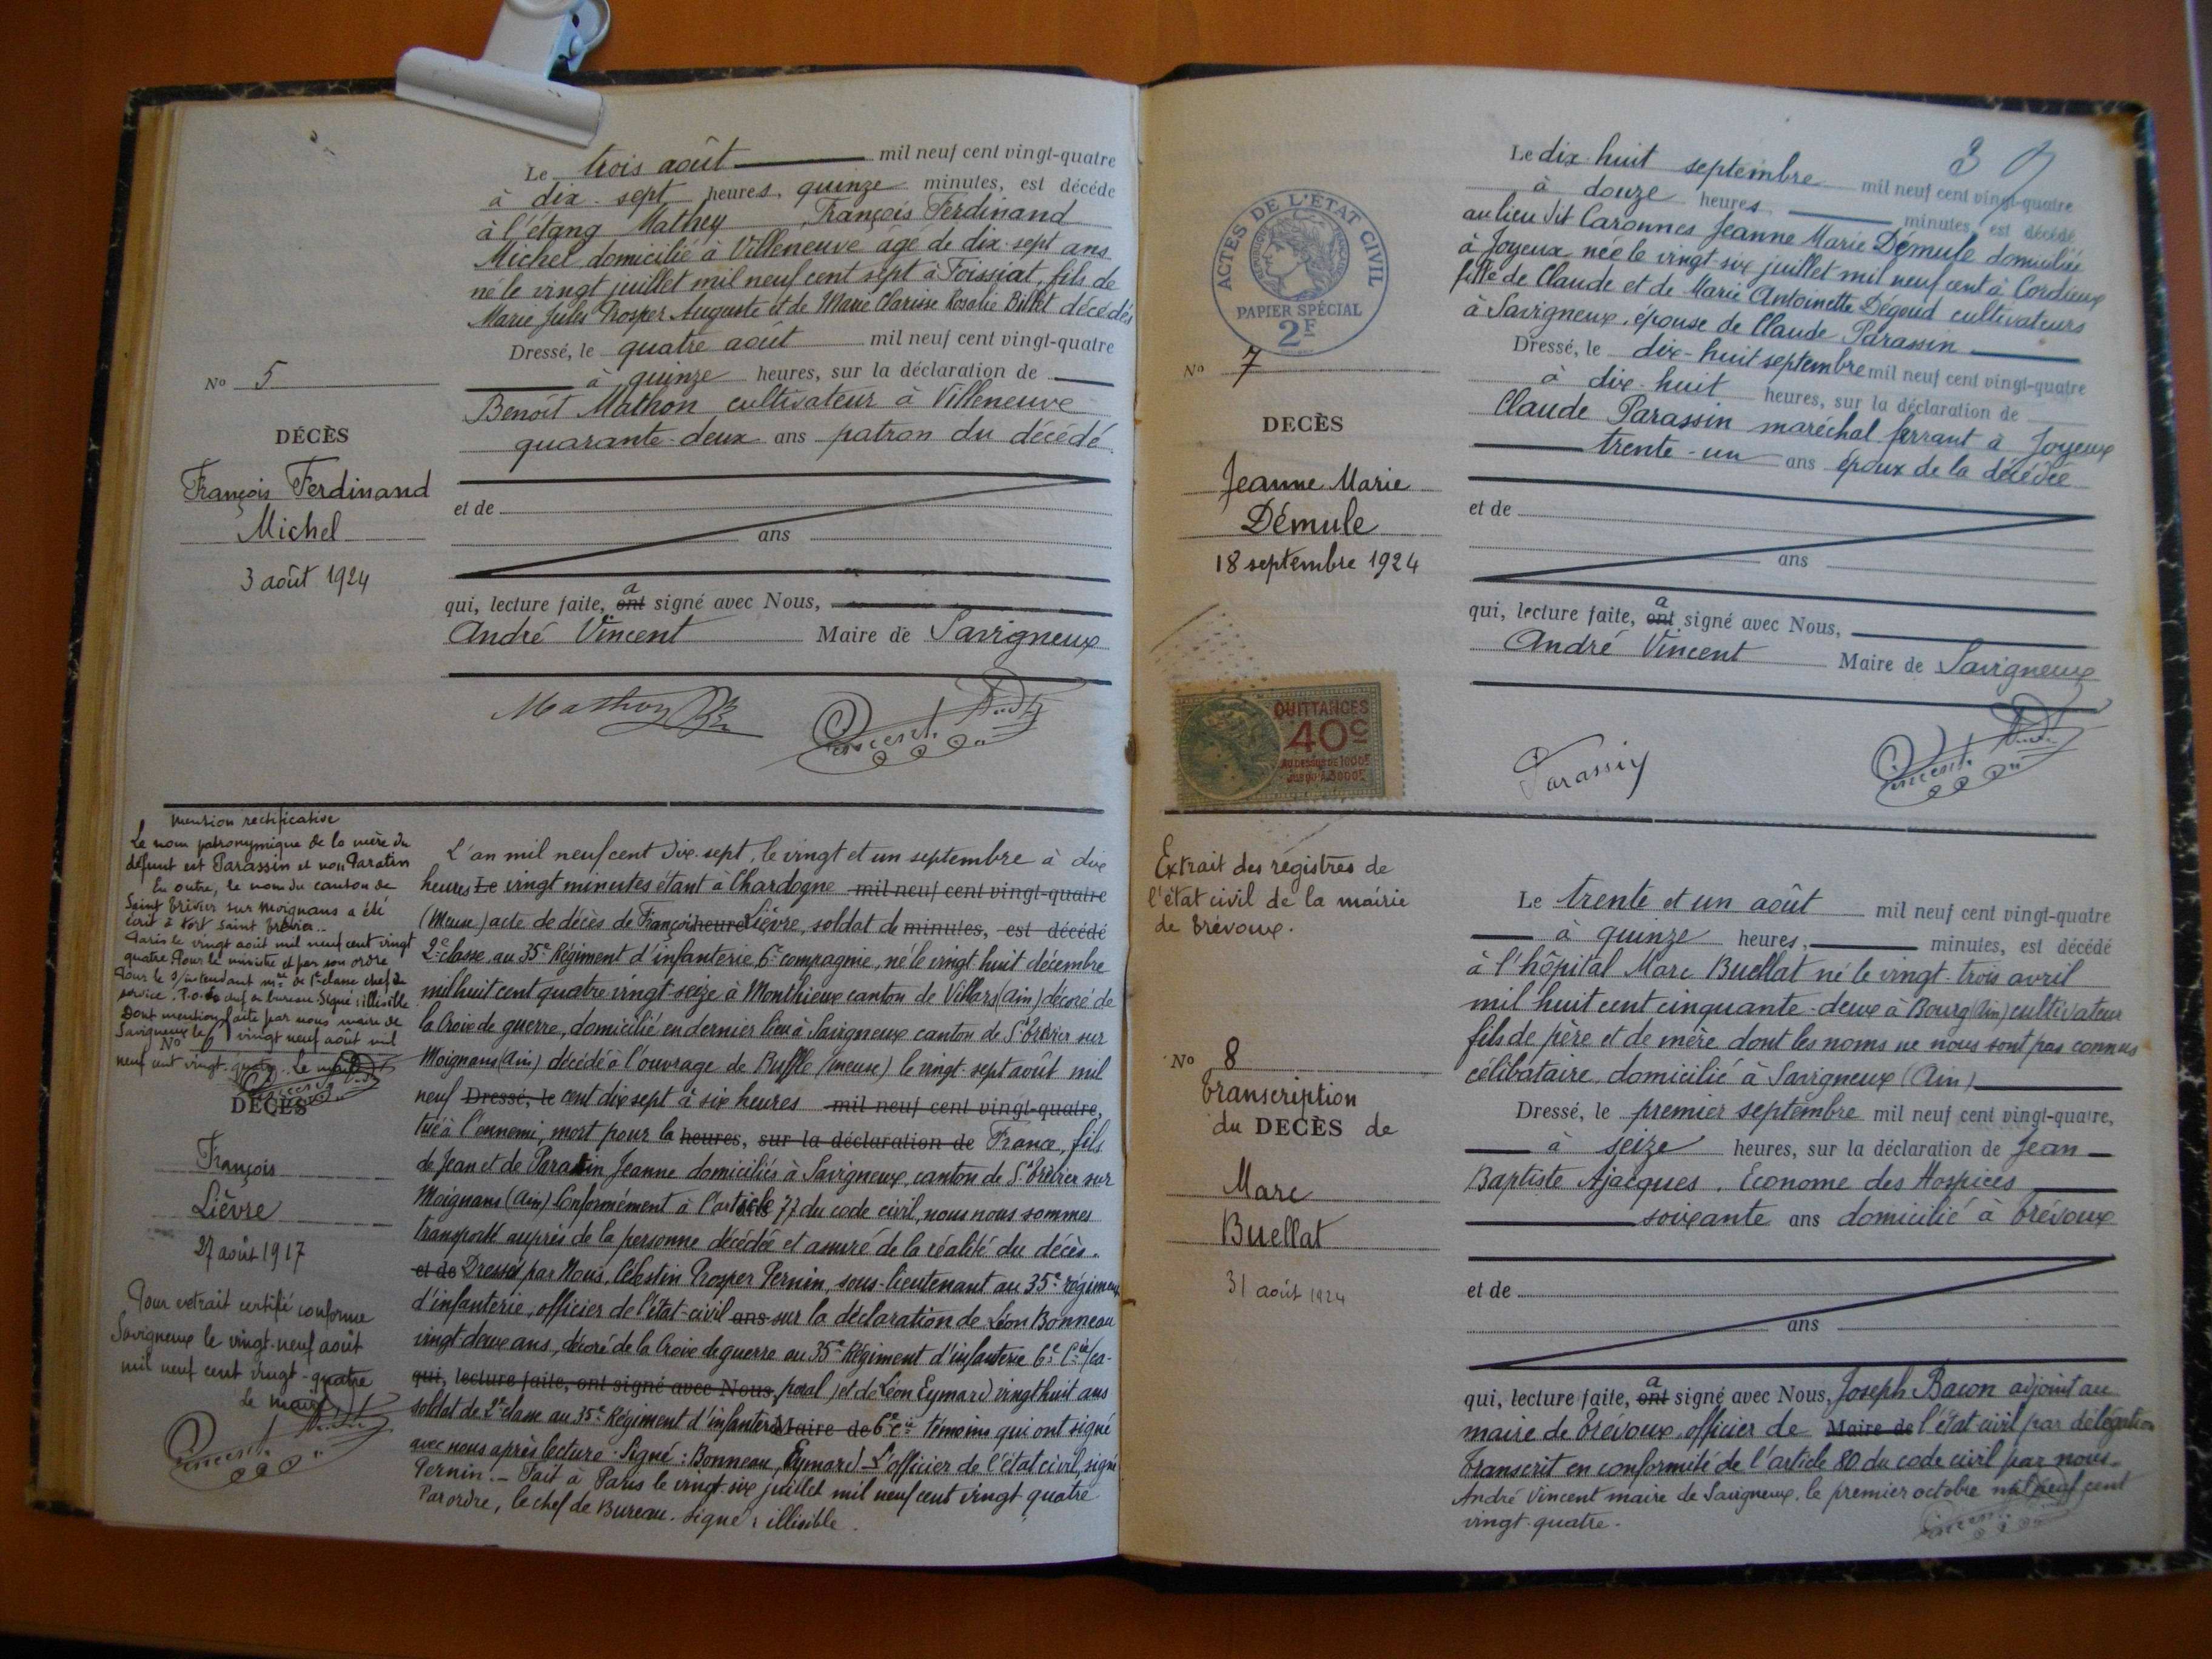 Le trois août mil neuf cent vingt-quatre
à dix-sept heures, quinze minutes, est décédé
à l'étang Mathey François Ferdinand
Michel domicilié à Villeneuve âgé de dix-sept ans
né le vingt juillet mil neuf cent sept à Foissiat, fils de
Marie Jules Prosper Auguste et de Marie Clarisse Rosalie Billet décédés
Dressé, le quatre août mil neuf cent vingt-quatre
à quinze heures, sur la déclaration de
Benoît Mathon cultivateur à Villeneuve
quarante-deux ans patron du décédé
et de
ans
qui, lecture faite, ont a signé avec Nous,
André Vincent Maire de Savigneux
Mathon
Vincent André
No 5
DÉCÈS
François Ferdinand
Michel
3 août 1924
Mention rectificative
Le nom patronymique de la mère du
défunt est Parassin et non Paratin
En outre, le nom du canton de
Saint Trivier sur Moignans a été
écrit à tort Saint Trévier..
Paris le vingt août mil neuf cent vingt
quatre Pour le ministre et par son ordre
Pour le s/intendant m.re de 1re classe chef de
service. P.o. le chef de bureau. Signé : illisible
Dont mention faite par nous maire de
Savigneux le vingt neuf août mil
No 6
neuf cent vingt-quatre. Le maire
DÉCÈS
François
Lièvre
27 août 1917
Pour extrait certifié conforme
Savigneux le vingt-neuf août
mil neuf cent vingt-quatre
Le maire
Vincent André
L'an mil neuf cent dix-sept, le vingt et un septembre à dix
heures Le vingt minutes étant à Chardogne mil neuf cent vingt-quatre
(Meuse) acte de décès de François heure Lièvre, soldat de minutes, est décédé
2e classe, au 35e Régiment d'infanterie, 6e compagnie, né le vingt-huit décembre
mil huit cent quatre vingt-seize à Monthieux canton de Villars (Ain) décoré de
la Croix de guerre, domicilié en dernier lieu à Savigneux canton de St Trévier sur
Moignans (Ain) décédé à l'ouvrage de Buffle (meuse) le vingt-sept août mil
neuf Dressé, le cent dix sept à six heures mil neuf cent vingt-quatre,
tué à l'ennemi, mort pour la heures, sur la déclaration de France, fils
de Jean et de Paratin Jeanne domiciliés à Savigneux, canton de St Trévier sur
Moignans (Ain) Conformément à l'article 77 du code civil, nous nous sommes
transporté auprès de la personne décédée et assuré de la réalité du décès.
et de Dressé par Nous, Célestin Prosper Pernin, sous-lieutenant au 35e régiment
d'infanterie, officier de l'état-civil ans sur la déclaration de Léon Bonneau
vingt deux ans, décoré de la Croix de guerre au 35e Régiment d'infanterie 6e Cie (ca-
qui, lecture faite, ont signé avec Nous, poral) et de Léon Eymard vingt huit ans
soldat de 2e classe au 35e Régiment d'infanterie Maire de 6e Cie témoins qui ont signé
avec nous après lecture. Signé : Bonneau, Eymard L'officier de l'état civil, signé
Pernin. - Fait à Paris le vingt-six juillet mil neuf cent vingt quatre
Par ordre, le chef de Bureau. Signé : illisible.
3
Le dix-huit septembre mil neuf cent vingt-quatre
à douze heures minutes, est décédé
au lieu dit Caronnes Jeanne Marie Démule domiciliée
à Joyeux, née le vingt-six juillet mil neuf cent à Cordieux
fille de Claude et de Marie Antoinette Dégoud cultivateurs
à Savigneux, épouse de Claude Parassin
Dressé, le dix-huit septembre mil neuf cent vingt-quatre
à dix-huit heures, sur la déclaration de
Claude Parassin maréchal ferrant à Joyeux
trente-un ans époux de la décédée
et de
ans
qui, lecture faite, ont a signé avec Nous,
André Vincent Maire de Savigneux
Parassin
Vincent André
ACTES DE L'ÉTAT CIVIL
RÉPUBLIQUE FRANÇAISE
PAPIER SPÉCIAL
2F
No 7
DECÈS
Jeanne Marie
Démule
18 septembre 1924
QUITTANCES
40c
AU DESSUS DE 1000F
JUSQU'A 3000F
Extrait des régistres de
l'état civil de la mairie
de Trévoux.
No 8
Transcription
du DECÈS de
Marc
Buellat
31 août 1924
Le trente et un août mil neuf cent vingt-quatre
à quinze heures, minutes, est décédé
à l'hôpital Marc Buellat né le vingt-trois avril
mil huit cent cinquante-deux à Bourg (Ain) cultivateur
fils de père et de mère dont les noms ne nous sont pas connus
célibataire, domicilié à Savigneux (Ain)
Dressé, le premier septembre mil neuf cent vingt-quatre,
à seize heures, sur la déclaration de Jean
Baptiste Ajacques, Econome des Hospices
soixante ans domicilié à Trévoux
et de
ans
qui, lecture faite, ont a signé avec Nous, Joseph Bacon adjoint au
maire de Trévoux, officier de Maire de l'état civil par délégation
Transcrit en conformité de l'article 80 du code civil par nous
André Vincent maire de Savigneux, le premier octobre mil neuf cent
vingt-quatre.